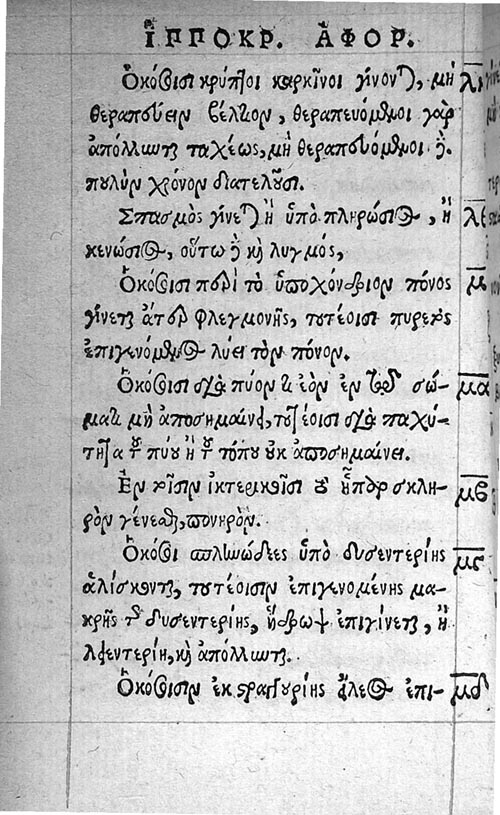 ἹΠΠΟΚΡ. ἈΦΟΡ.
Ὁκόσοισι κρύπτοι καρκῖνοι γίνονται, μὴ λη
θεραπεύειν βέλτιον, θεραπευόμενοι γὰρ
ἀπόλλυνται ταχέως, μὴ θεραπευόμενοι δὲ
πολὺν χρόνον διατελοῦσι.
Σπασμὸς γίνεται ἢ ὑπὸ πληρώσιος, ἢ λθ
κενώσιος, οὕτω δὲ καὶ λυγμός,
Ὁκόσοισι περὶ τὸ ὑποχόνδριον πόνος μ
γίνεται ἄτερ φλεγμονῆς, τουτέοισι πυρετὸς
ἐπιγενόμενος λύει τὸν πόνον.
Ὁκόσοισι διάπυον τι ἐὸν ἐν τῷ σώ- μα
ματι μὴ ἀποσημαίνει, τουτέοισι διὰ παχύ-
τητα τοῦ πύου ἢ τοῦ τόπου οὐκ ἀποσημαίνει.
Ἐν τοῖσιν ἰκτερικοῖσι τὸ ἧπαρ σκλη- μβ
ρὸν γένεσθαι, πονηρόν.
Ὁκόσοι σπληνώδεες ὑπὸ δυσεντερίης μγ
ἁλίσκονται, τουτέοισιν ἐπιγενομένης μα-
κρῆς τῆς δυσεντερίης, ὕδρωψ ἐπιγίνεται, ἢ
λειεντερίη, καὶ ἀπόλλυνται.
Ὁκόσοισιν ἐκ στραγγουρίης εἰλεὸς ἐπι- μδ